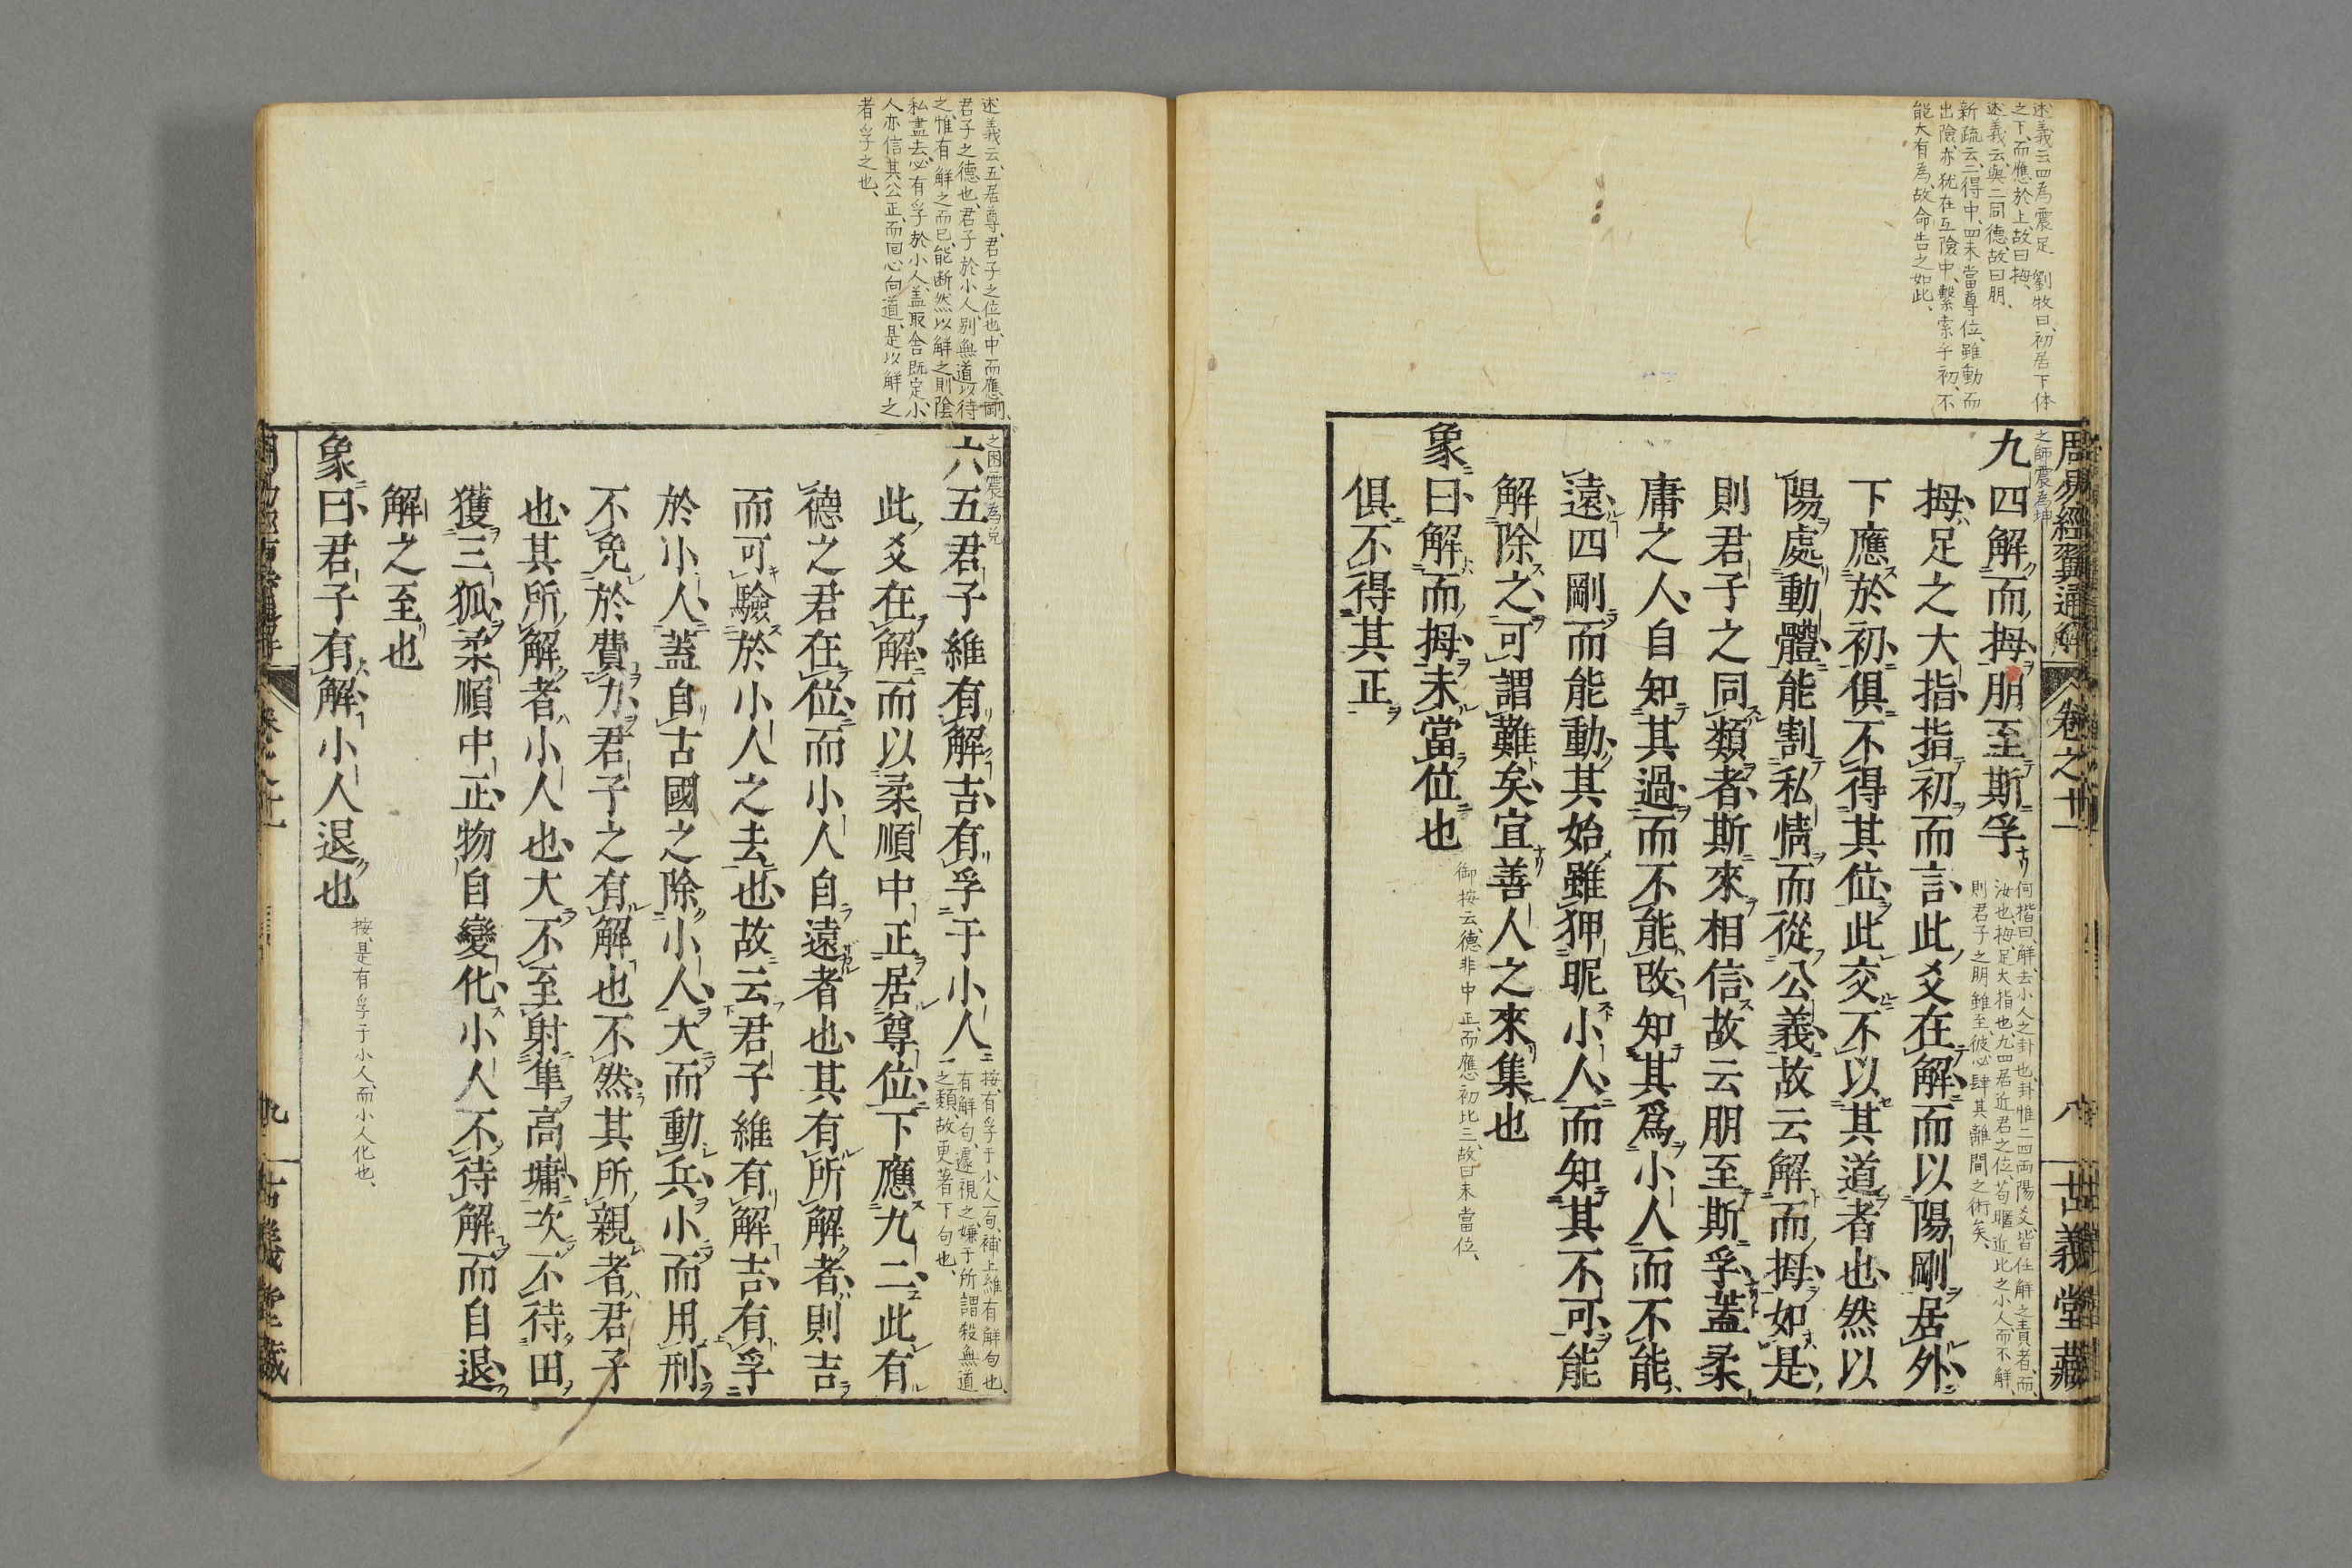 述義云四為震足 劉牧曰初居下体
之下而應於上故曰拇
述義云與二同德故曰朋
新疏云二得中四未當尊位雖動而
出險亦猶在互險中繫索乎初不
能大有為故命告之如此
周易經翼通解 卷之十一 八 古義堂藏
之師震為坤
九四解而拇朋至斯孚
何楷曰解去小人之卦也卦惟二四両陽爻皆任解之責者而
汝也拇足大指也九四居近君之位苟暱近比之小人而不解
則君子之朋雖至彼必肆其離間之術矣
拇足之大指指初而言此爻在解而以陽剛居外
下應於初俱不得其位此交不以其道者也然以
陽處動體能割私情而從公義故云解而拇如是
則君子之同類者斯來相信故云朋至斯孚蓋柔
庸之人自知其過而不能改知其爲小人而不能
遠四剛而能動其始雖狎昵小人而知其不可能
解除之可謂難矣宜善人之來集也
象曰解而拇未當位也
御按云德非中正而應初比三故曰未當位
俱不得其正
述義云五居尊君子之位也中而應剛
君子之德也君子於小人別無道以待
之惟有解之而已能断然以解之則陰
私盡去必有孚於小人盖取舎既定小
人亦信其公正而回心向道是以解之
者孚之也
之困震為兌
六五君子維有解吉有孚于小人
按有孚于小人一句補上維有解句也
有解句遽視之嫌于所謂殺無道
之類故更著下句也
此爻在解而以柔順中正居尊位下應九二此有
德之君在位而小人自遠者也其有所解者則吉
而可驗於小人之去也故云君子維有解吉有孚
於小人蓋自古國之除小人大而動兵小而用刑
不免於費力君子之有解也不然其所親者君子
也其所解者小人也大不至射隼高墉次不待田
獲三狐柔順中正物自變化小人不待解而自退
解之至也
象曰君子有解小人退也
按是有孚于小人而小人化也
九 古義堂藏